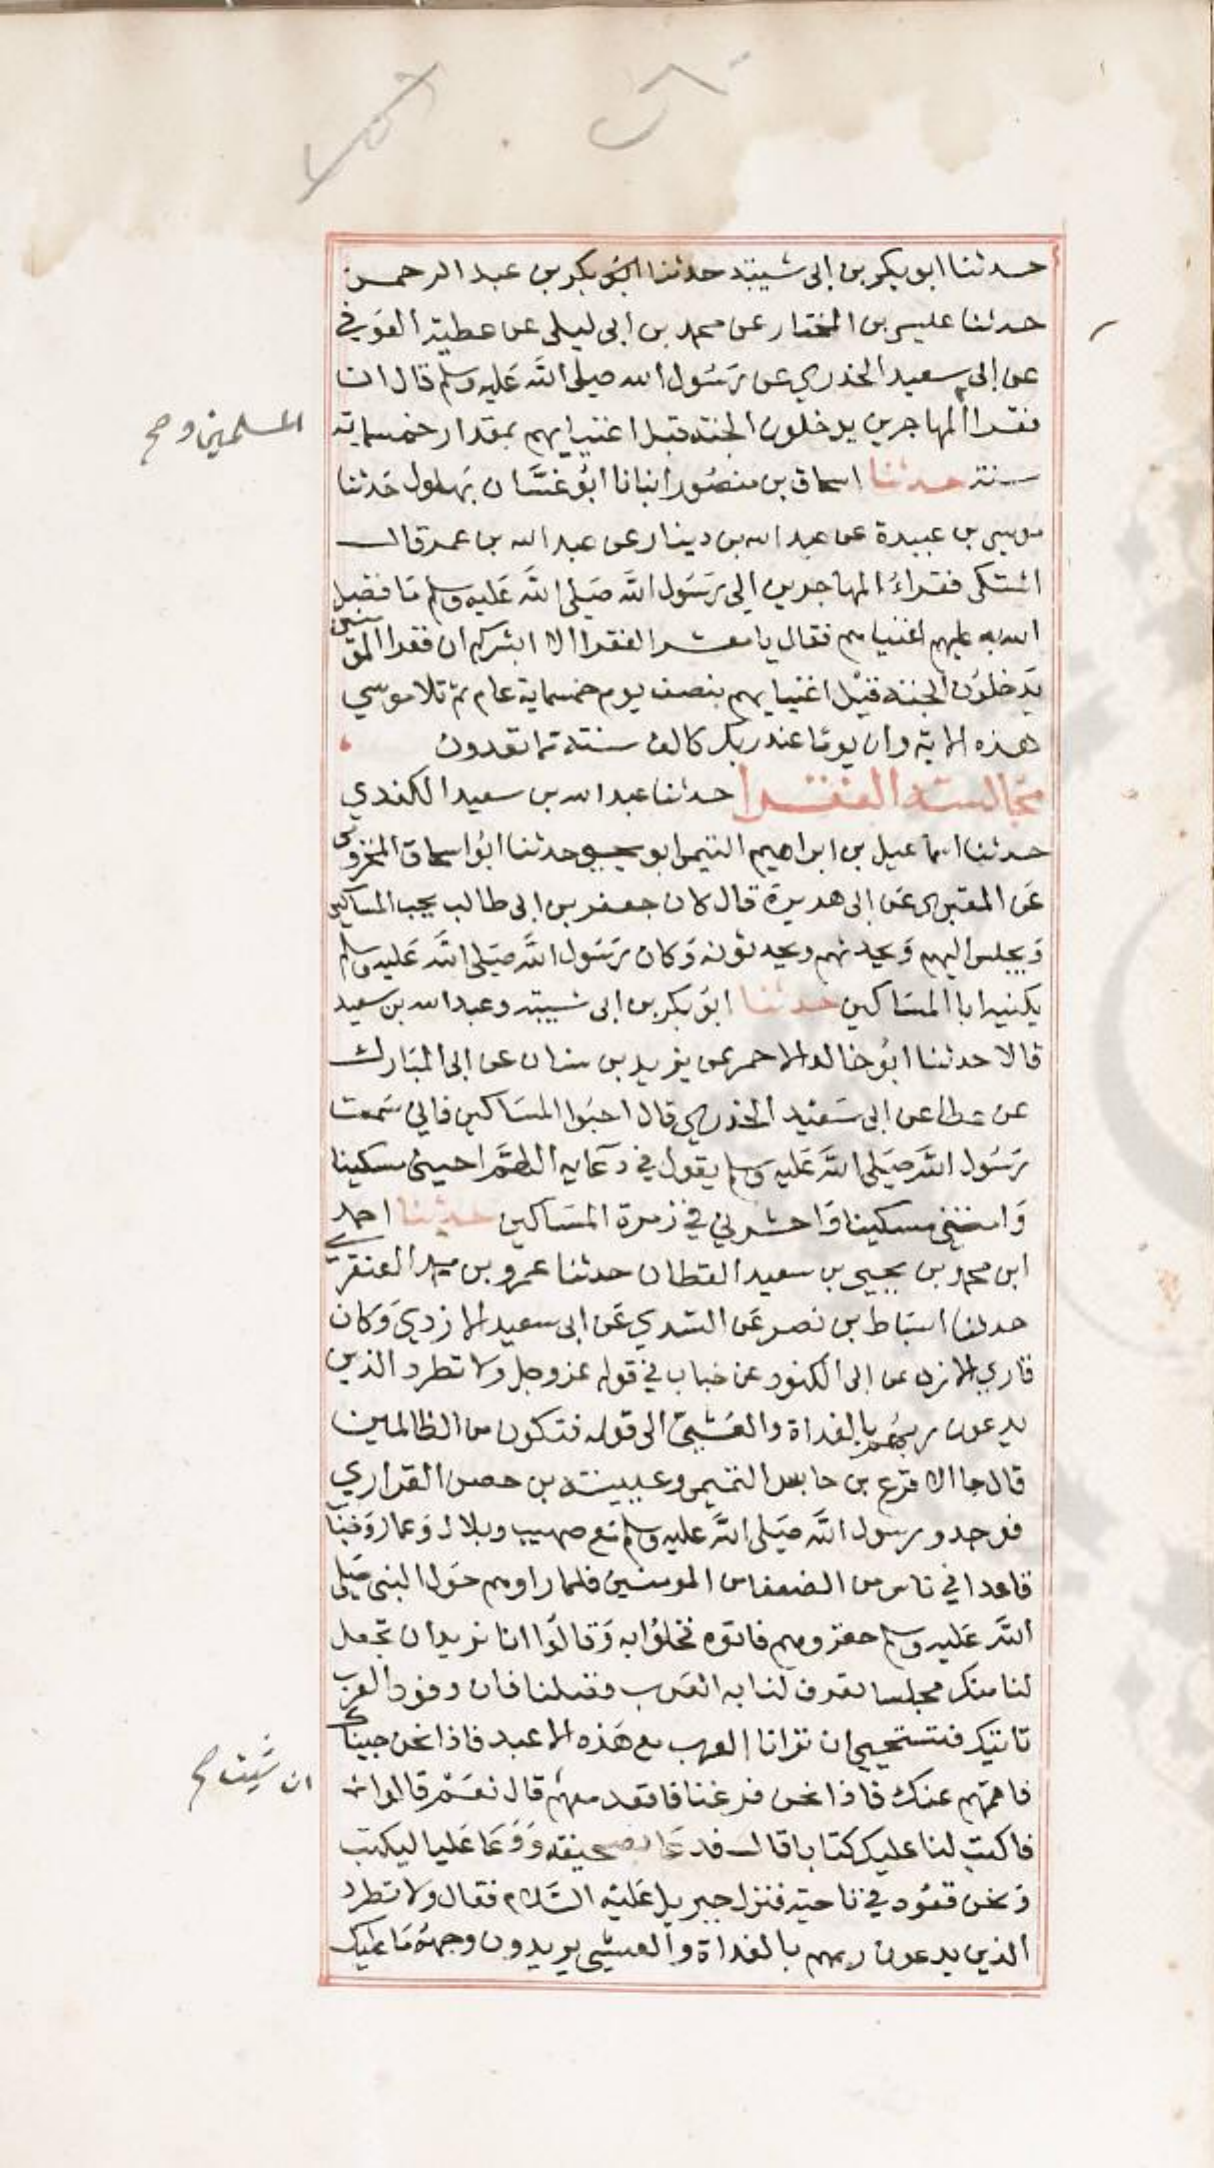 حدثنا ابو بكر بن ابى شيبة حدثنا ابو بكر بن عبد الرحمن
حدثنا عليسى بن المختار عن محمد بن ابى ليلى عن عطية العوفى
عن ابى سعيد الخدري عن رَسُول الله صلى الله عَليه وسلم قال ان
فقرا المهاجرين يدخلون الجنة قبل اغنيايهم بمقدار خمسماية
المسلمين و صح
سنة حدثنا اسحاق بن منصُور انبانا ابُو غسَّان بَهلول حَدثنا
موسى بن عبيدة عن عبد الله بن دينار عن عبد الله بن عمر قال
اشتكى فقراءُ المهاجرين الى رَسَول الله صَلى الله عَليه وسلم مَا فضل
الله به عليهم اغنياهم فقال يا معشر الفقرا الا ابشركم ان فقرا المؤمنين
يَدخلوُن الجنة قبْل اغنيايهم بنصف يوم خمسماية عام ثم تلا موسي
هذه الاية وان يومًا عند ربك كالف سنة مما تعدون
مجالسة الفقرا حدثنا عبد الله بن سعيد الكندي
حدثنا اسماعيل بن ابراهيم التيمى ابو يحيى حدثنا ابُو اسحاق المخزومى
عَن المقبرى عَن ابى هريرة قال كان جعفر بن ابى طالب يحب المساكين
وَيجلس اليهم وَيحدثهم ويحدثونه وَكان رَسَول الله صَلى الله عَليه وسلم
يكنيه ابا المسَاكين حدثنا ابوُ بكر بن ابى شيبة وعبد الله بن سعيد
قالا حدثنا ابُو خالد الاحمر عن يزيد بن سنان عن ابى المبَارك
عن عطا عن ابى سَعيد الخدري قال احبَوا المسَاكين فانى سَمعت
رَسُول الله صَلى الله عَليه وَسلم يقول في دعَايه اللهمَّ احينى مسكينا
وَامتنى مسكينا وَاحشرني في زمرة المسَاكين حدثنا احمد
ابن محمد بن يحيى بن سعيد القطان حدثنا عمرو بن محمد العنقزى
حدثنا اسبَاط بن نصر عَن السَّدي عَن ابى سعيد الازديَ وَكان
قاري الازد عن ابى الكنود عن خباب في قوله عز وجل ولا تطرد الذين
يدعون ربهُم بالغداة والعَشيّ الى قوله فتكون من الظالمين
قال جا الاقرع بن حابس التميمى وعيينة بن حصن الفزاري
فوجدو رسول الله صَلى الله عليه وسلم مَع صهيب وبلال وَعمار وَخبّا
قاعدا في ناس من الضعفا من المومنين فلما راوهم حَول النبى صَلى
الله عَليه وسلم حقروهم فاتوه فخلوُا به وَقالوُا انا نريد ان تجعل
لنا منك مجلسا تعرف لنا به العرب فضلنا فان وفود العرب
تاتيك فنستحيي ان ترانا العرب مع هَذه الاعبد فاذا نحن جيناك
فاقمهم عنك فاذا نحن فرغنا فاقعد معهم قال نعَمْ قالوا
ان شيَت صح
فاكتب لنا عليك كتابا قال فدعَا بصحيفة وَدَعَا عَليا ليكتب
وَنحن قعَود في ناحية فنزل جبريل عَليه السَّلام فقال ولا تطرد
الذين يدعون ربهم بالغداة والعشي يريدون وجههُ مَا عليك